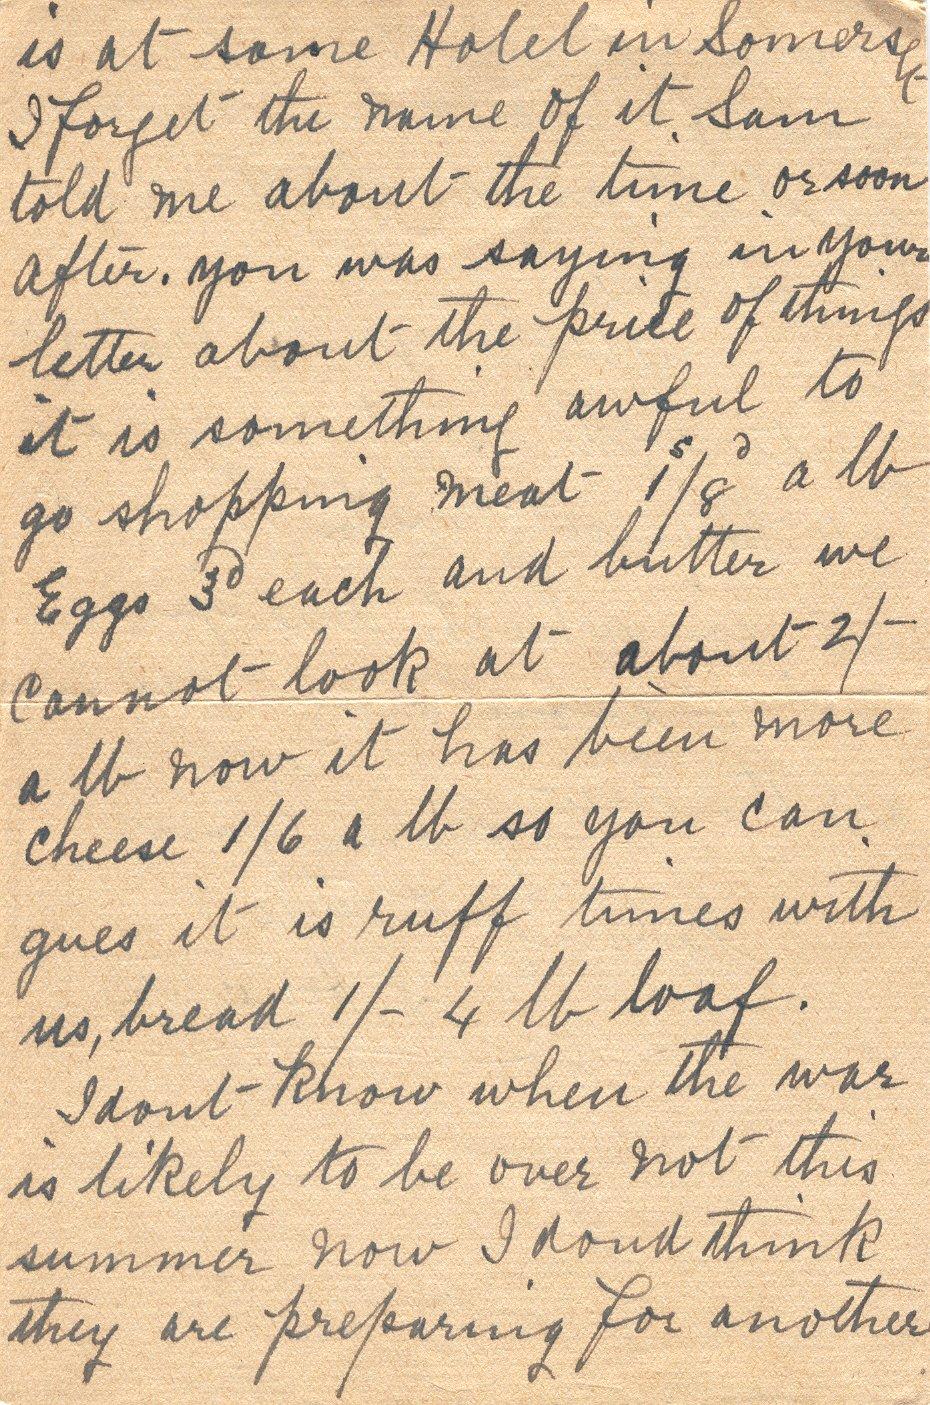 is at some Hotel in Somerset
I forget the name of it Sam
told me about the time or soon
after. you was saying in your
letter about the price of things
it is something awful to
go shopping meat 1s/8d a lb
Eggs 3d each and butter we
cannot look at about 2/-
a lb now it has been more
cheese 1/6 a lb so you can
gues it is ruff times with
us, bread 1/- 4 lb loaf.
I dont know when the war
is likely to be over not this
summer now I dond think
they are preparing for another